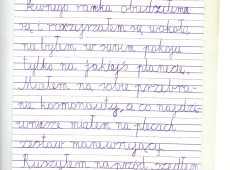 Pewnego ranka obudziłem
się i rozejrzałem się wokoło
nie byłem w swoim pokoju
tylko na jakiejś planecie.
Miałem na sobie przebra-
nie kosmonauty, a co najdzi-
wniejsze miałem na plecach
zestaw manewrujący.
Ruszyłem na przód szedłem